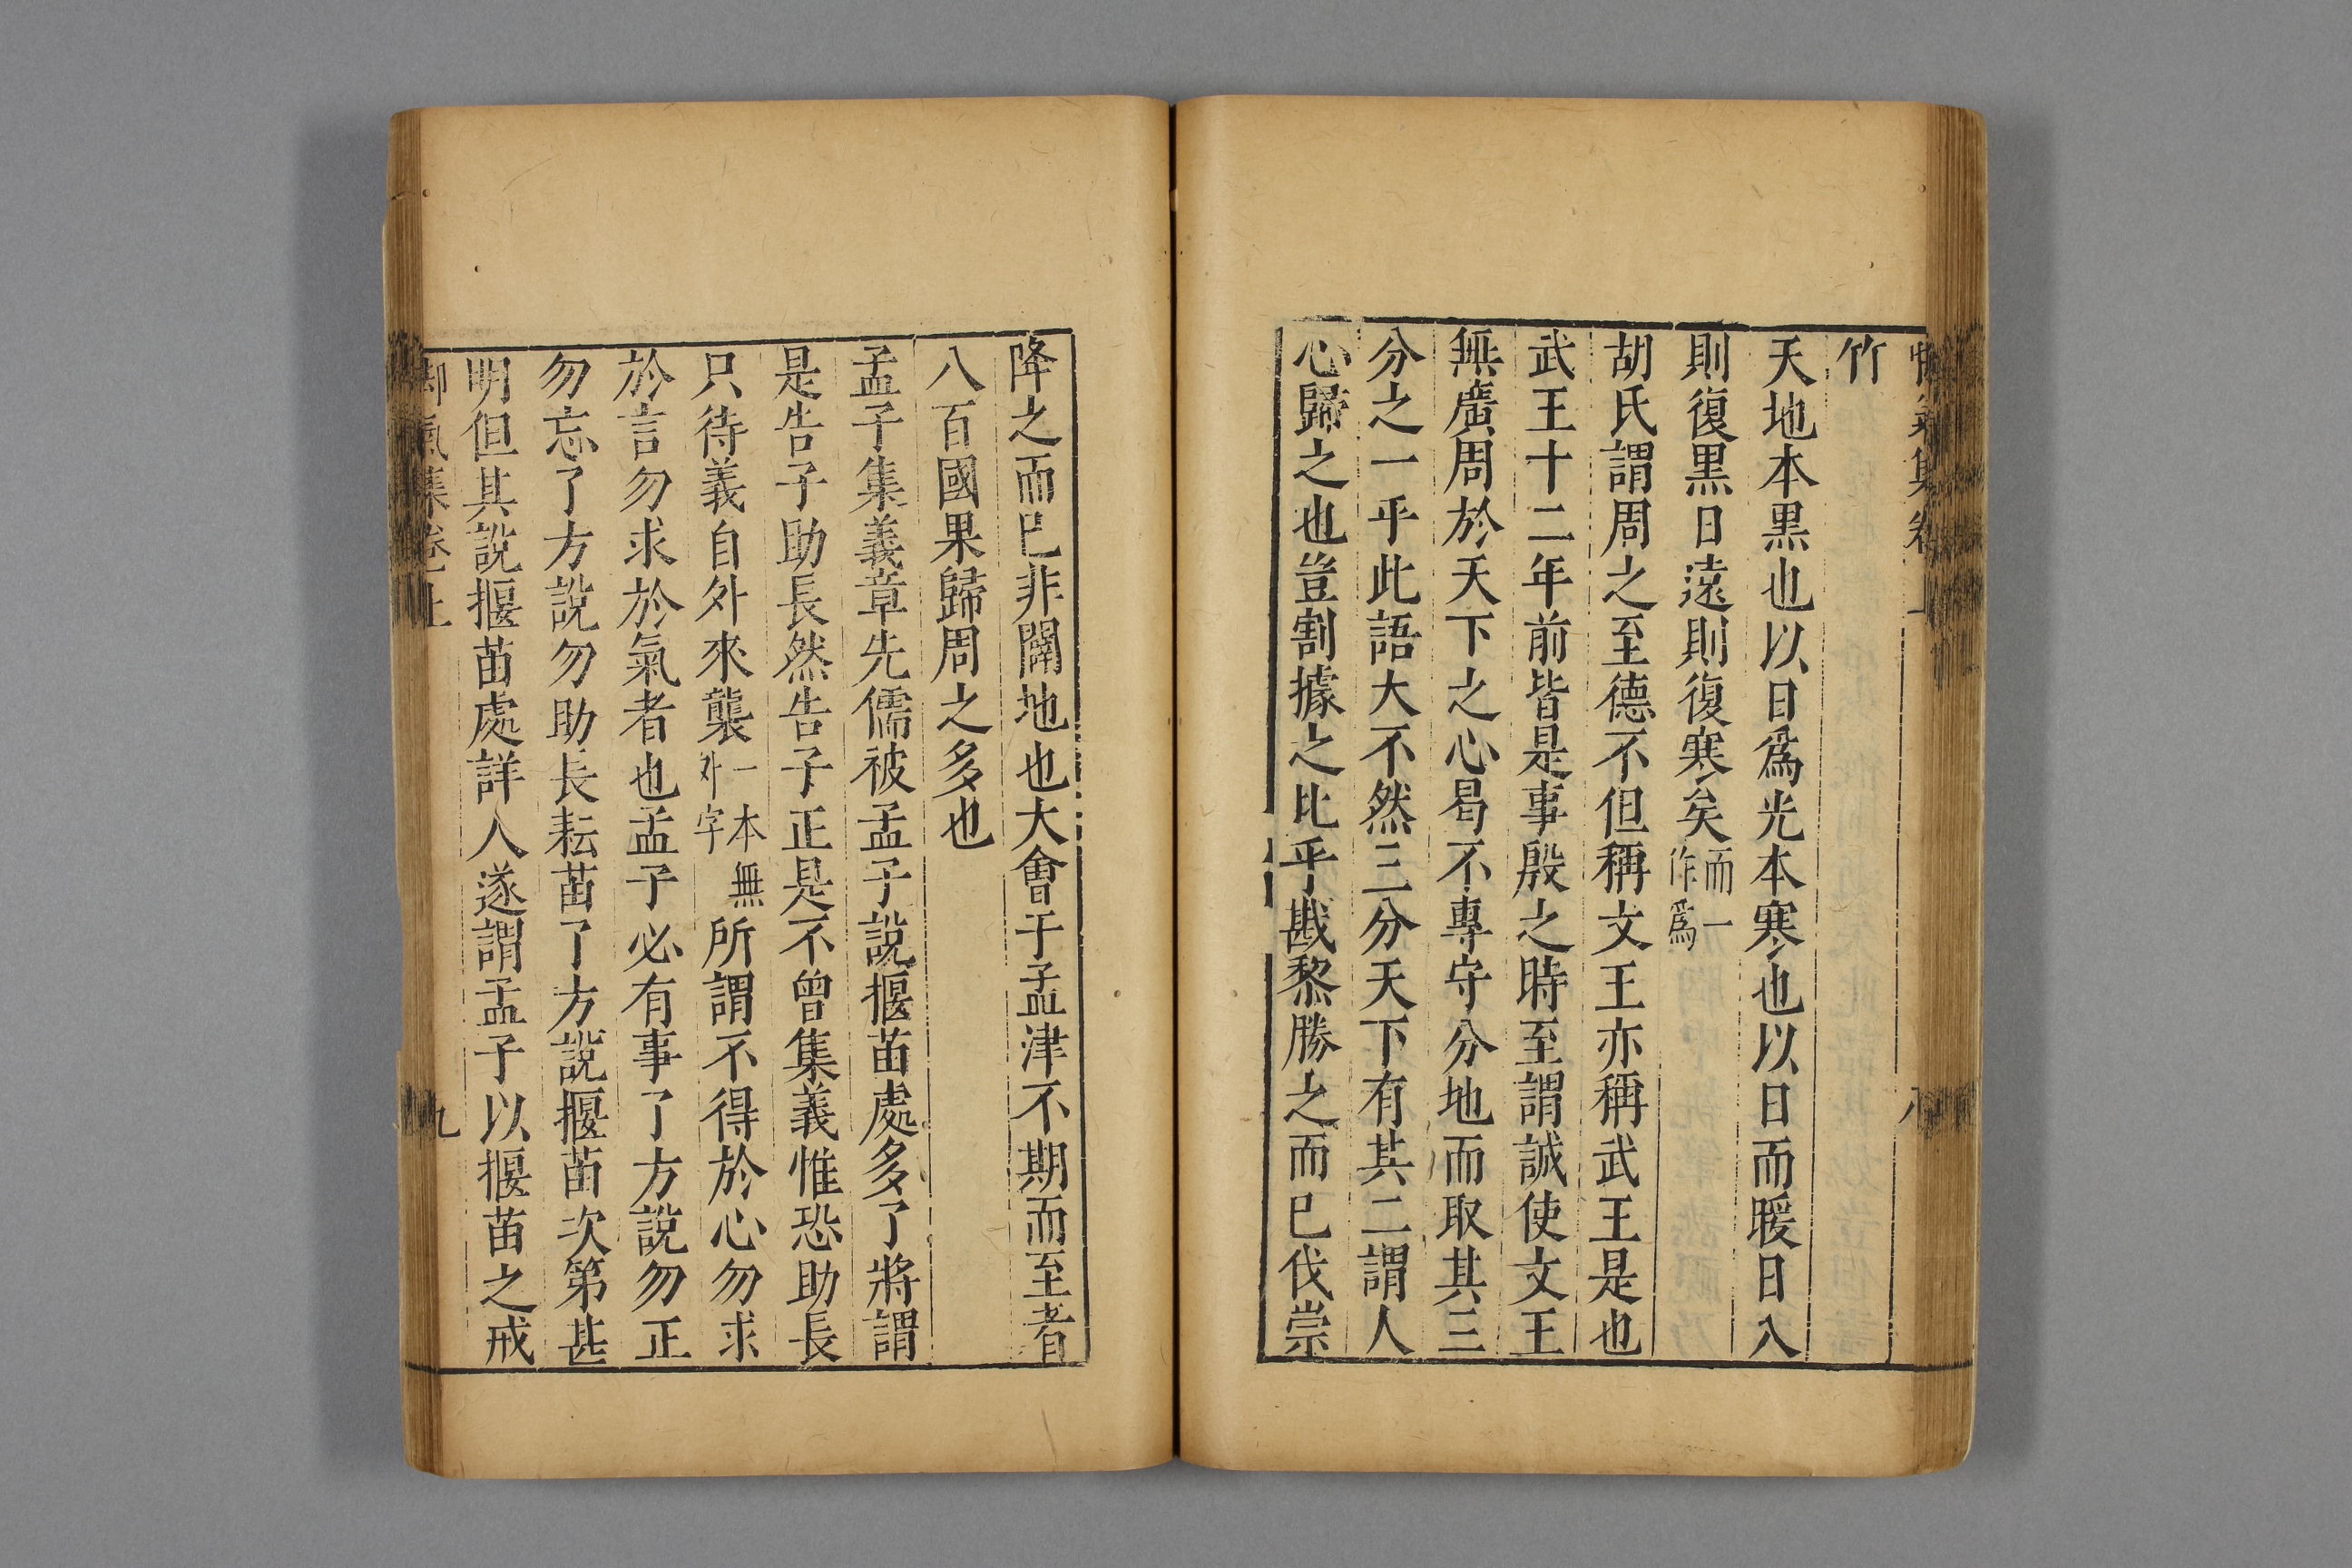 竹
天地本黒也以日爲光本寒也以日而暖日入
則復黒日遠則復寒矣而一作爲
胡氏謂周之至德不但稱文王亦稱武王是也
武王十二年前皆是事殷之時至謂誠使文王
無廣周於天下之心曷不專守分地而取其三
分之一乎此語大不然三分天下有其二謂人
心歸之也豈割據之比乎戡黎勝之而已伐崇
降之而已非闢地也大會于孟津不期而至者
八百國果歸周之多也
孟子集義章先儒被孟子說揠苗處多了將謂
是告子助長然告子正是不曾集義惟恐助長
只待義自外來襲一本無外字所謂不得於心勿求
於言勿求於氣者也孟子必有事了方說勿正
勿忘了方說勿助長耘苗了方說揠苗次第甚
明但其說揠苗處詳人遂謂孟子以揠苗之戒
脚氣集卷上
九